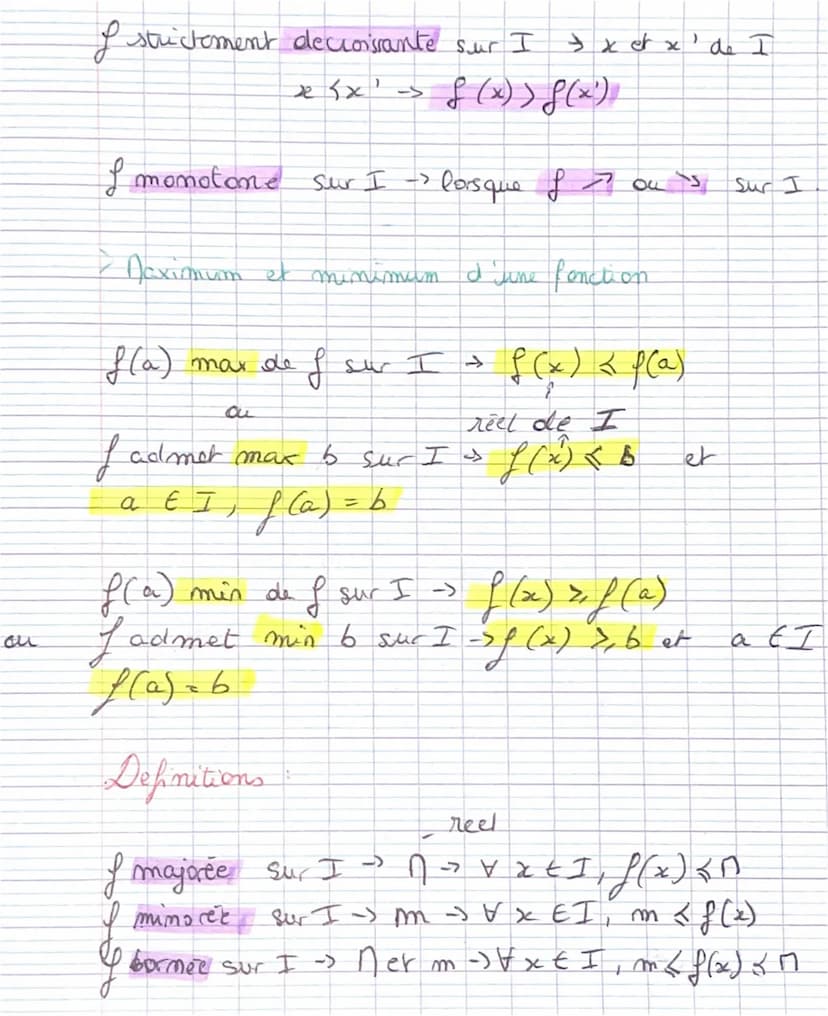 f strictement decroissante sur I → x et x' de I
x < x' → f(x) > f(x')
f monotone sur I → lorsque f ↗ ou ↘ sur I.
> Maximum et minimum d'une fonction
f(a) max de f sur I → f(x) ⩽ f(a)
ou réel de I
f admet max b sur I → f(x) ⩽ b et
a ∈ I, f(a) = b
f(a) min de f sur I → f(x) ⩾ f(a)
ou f admet min b sur I → f(x) ⩾ b et a ∈ I
f(a) = b
Definitions :
reel
f majorée sur I → M → ∀ x ∈ I, f(x) ⩽ M
f minorée sur I → m → ∀ x ∈ I, m ⩽ f(x)
f bornée sur I → M et m → ∀ x ∈ I, m ⩽ f(x) ⩽ M